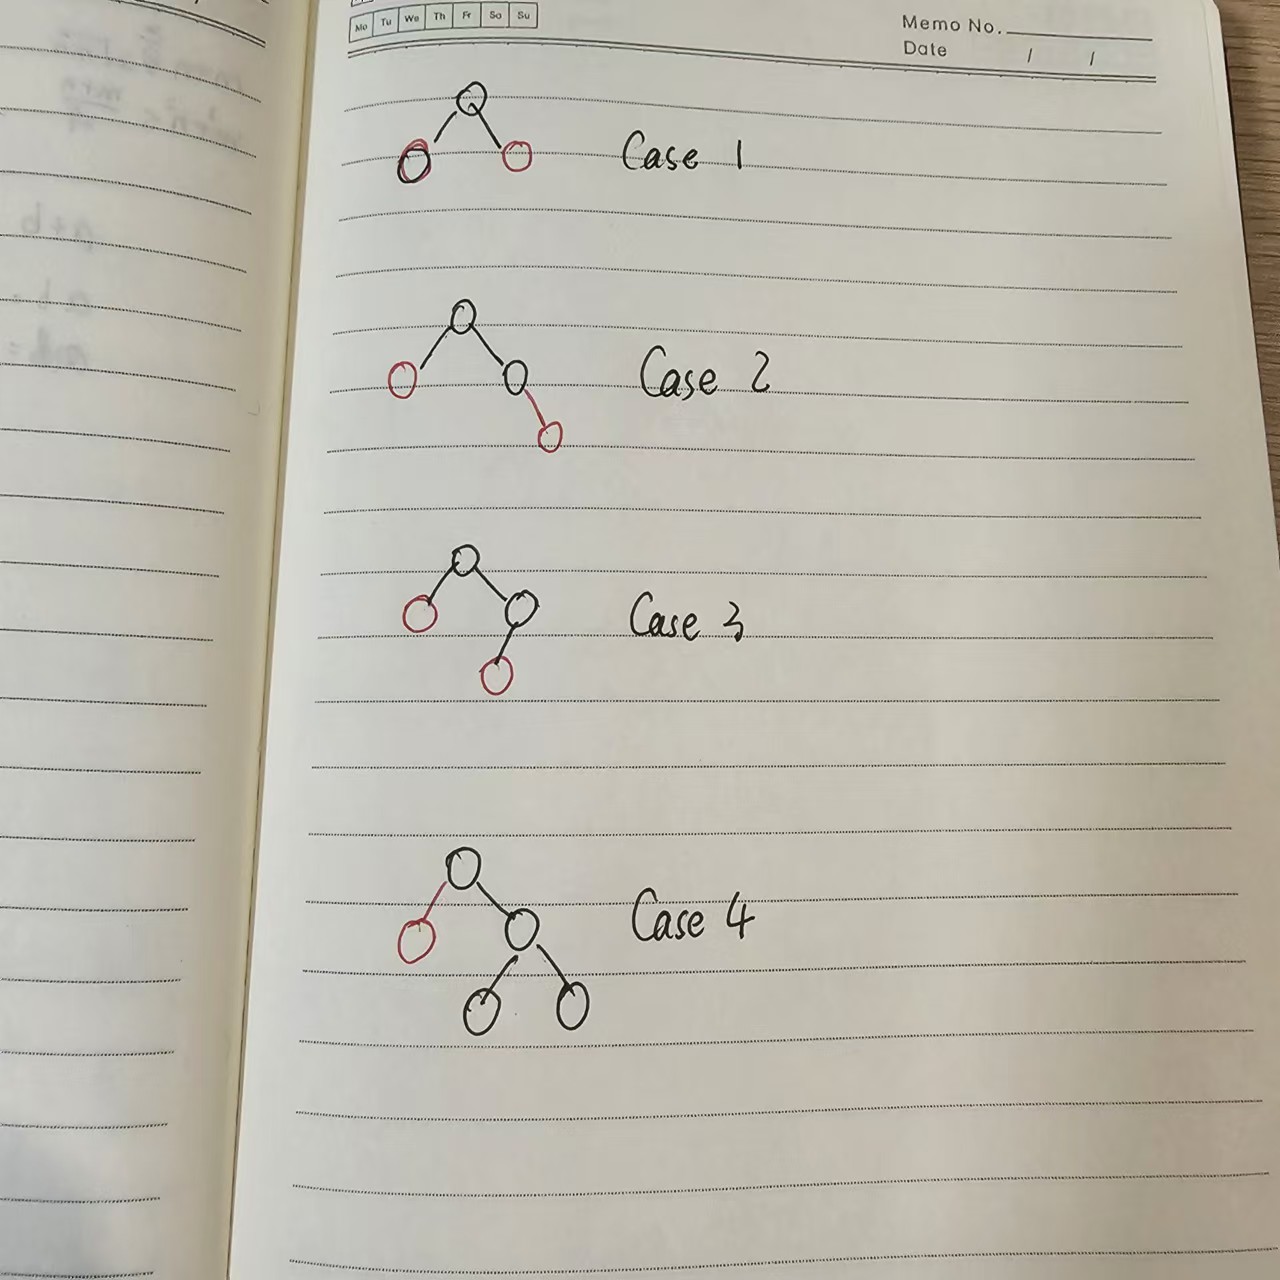 Mo Tu We Th Fr Sa Su
Memo No.
Date / /
Case 1
Case 2
Case 3
Case 4